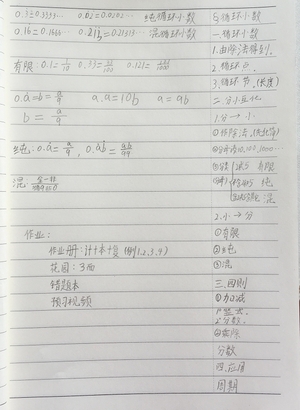 0.3=0.333… 0.02=0.0202… 纯循环小数
0.16=0.1666… 0.213=0.21313… 混循环小数
有限 0.1=1/10 0.33=33/100 0.121=121/1000
0.a=b=a/9 a.a=10b a=9b
b=a/9
纯:0.a=a/9, 0.ab=ab/99
混
作业:
作业册:计+本+复(例1,2,3,4)
花园:3面
错题本
预习视频
5.循环小数
一.循环小数
1.由除法得到.
2.循环点.
3.循环节.(长度)
二.分小互化
1.分→小
①除法
10,100,1000…
有限
纯
混
2.小→分
①有限
②纯
③混
三.四则
①加减
2°分数.
②乘除
分数
四.应用
周期